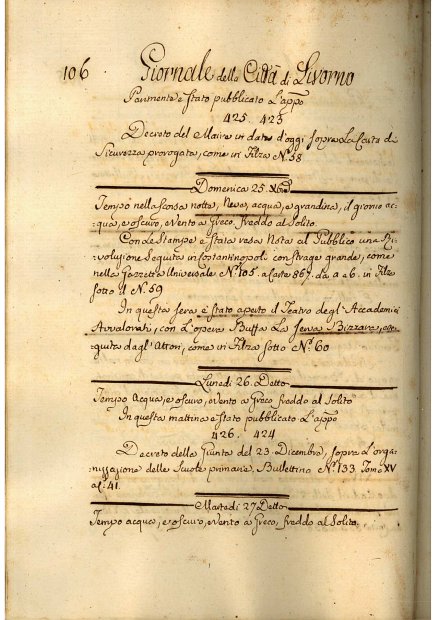 106 Giornale della Città di Livorno
Parimente è stato pubblicato L'appo
425. 423
Decreto del Maire in data d'oggi sopra La Carta di
Sicurezza prorogata, come in Filza N.° 58
Domenica 25. Xbre
Tempo nella scorsa notte, Neve, acqua, e grandina, il giorno ac-
qua, e oscuro, e Vento a Greco freddo al Solito.
Con Le Stampe è stata resa Nota al Pubblico una Ri-
voluzione Seguita in Costantinopoli con strage grande, come
nella Gazzetta Universale N.° 105. a Carte 867. da a e b. in Filza
sotto il N.° 59
In questa sera è stato aperto il Teatro degl'Accademici
Avvalorati, con L'opera Buffa La Serva Bizzara, ese-
guita dagl'Attori, come in Filza sotto N.° 60
Lunedi 26. Detto
Tempo Acqua, e oscuro, e Vento a Greco freddo al Solito
In questa mattina è stato pubblicato L'appo
426. 424
Decreto della Giunta del 23. Dicembre, sopra L'orga-
nizzazione delle Scuole primarie, Bullettino N.° 133 Tomo XV
a c. 41.
Martedi 27 Detto
Tempo acqua, e oscuro, e Vento a Greco, freddo al Solito.